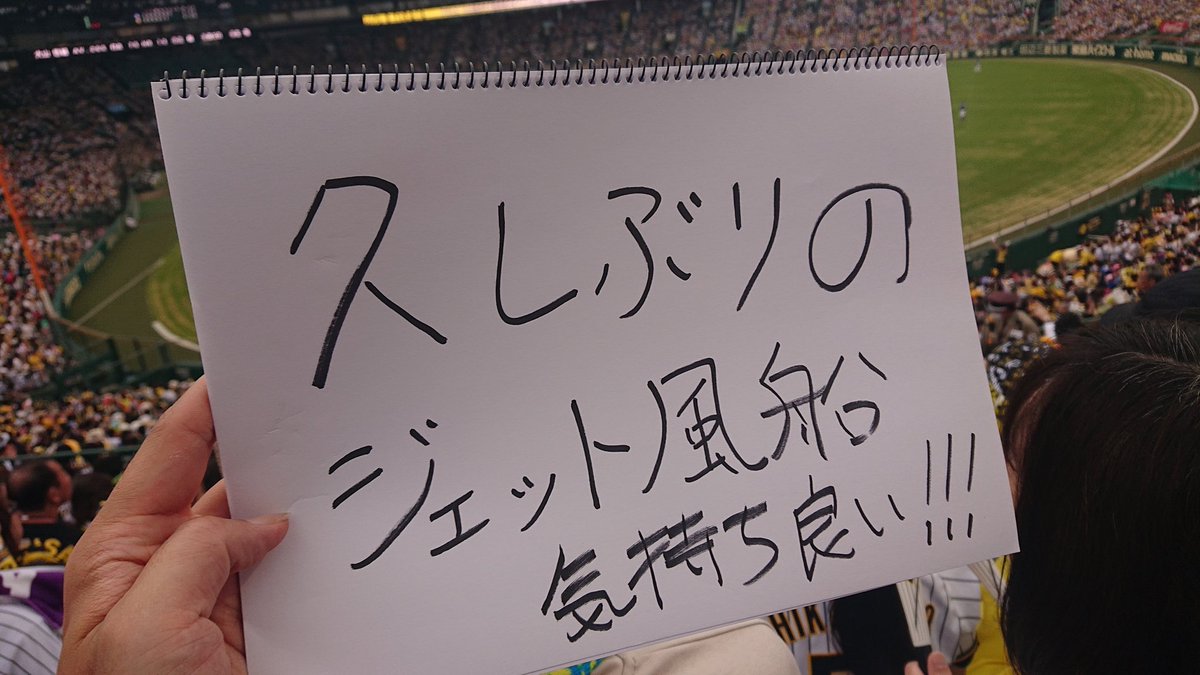 久しぶりの
ジェット風船
気持ち良い!!!